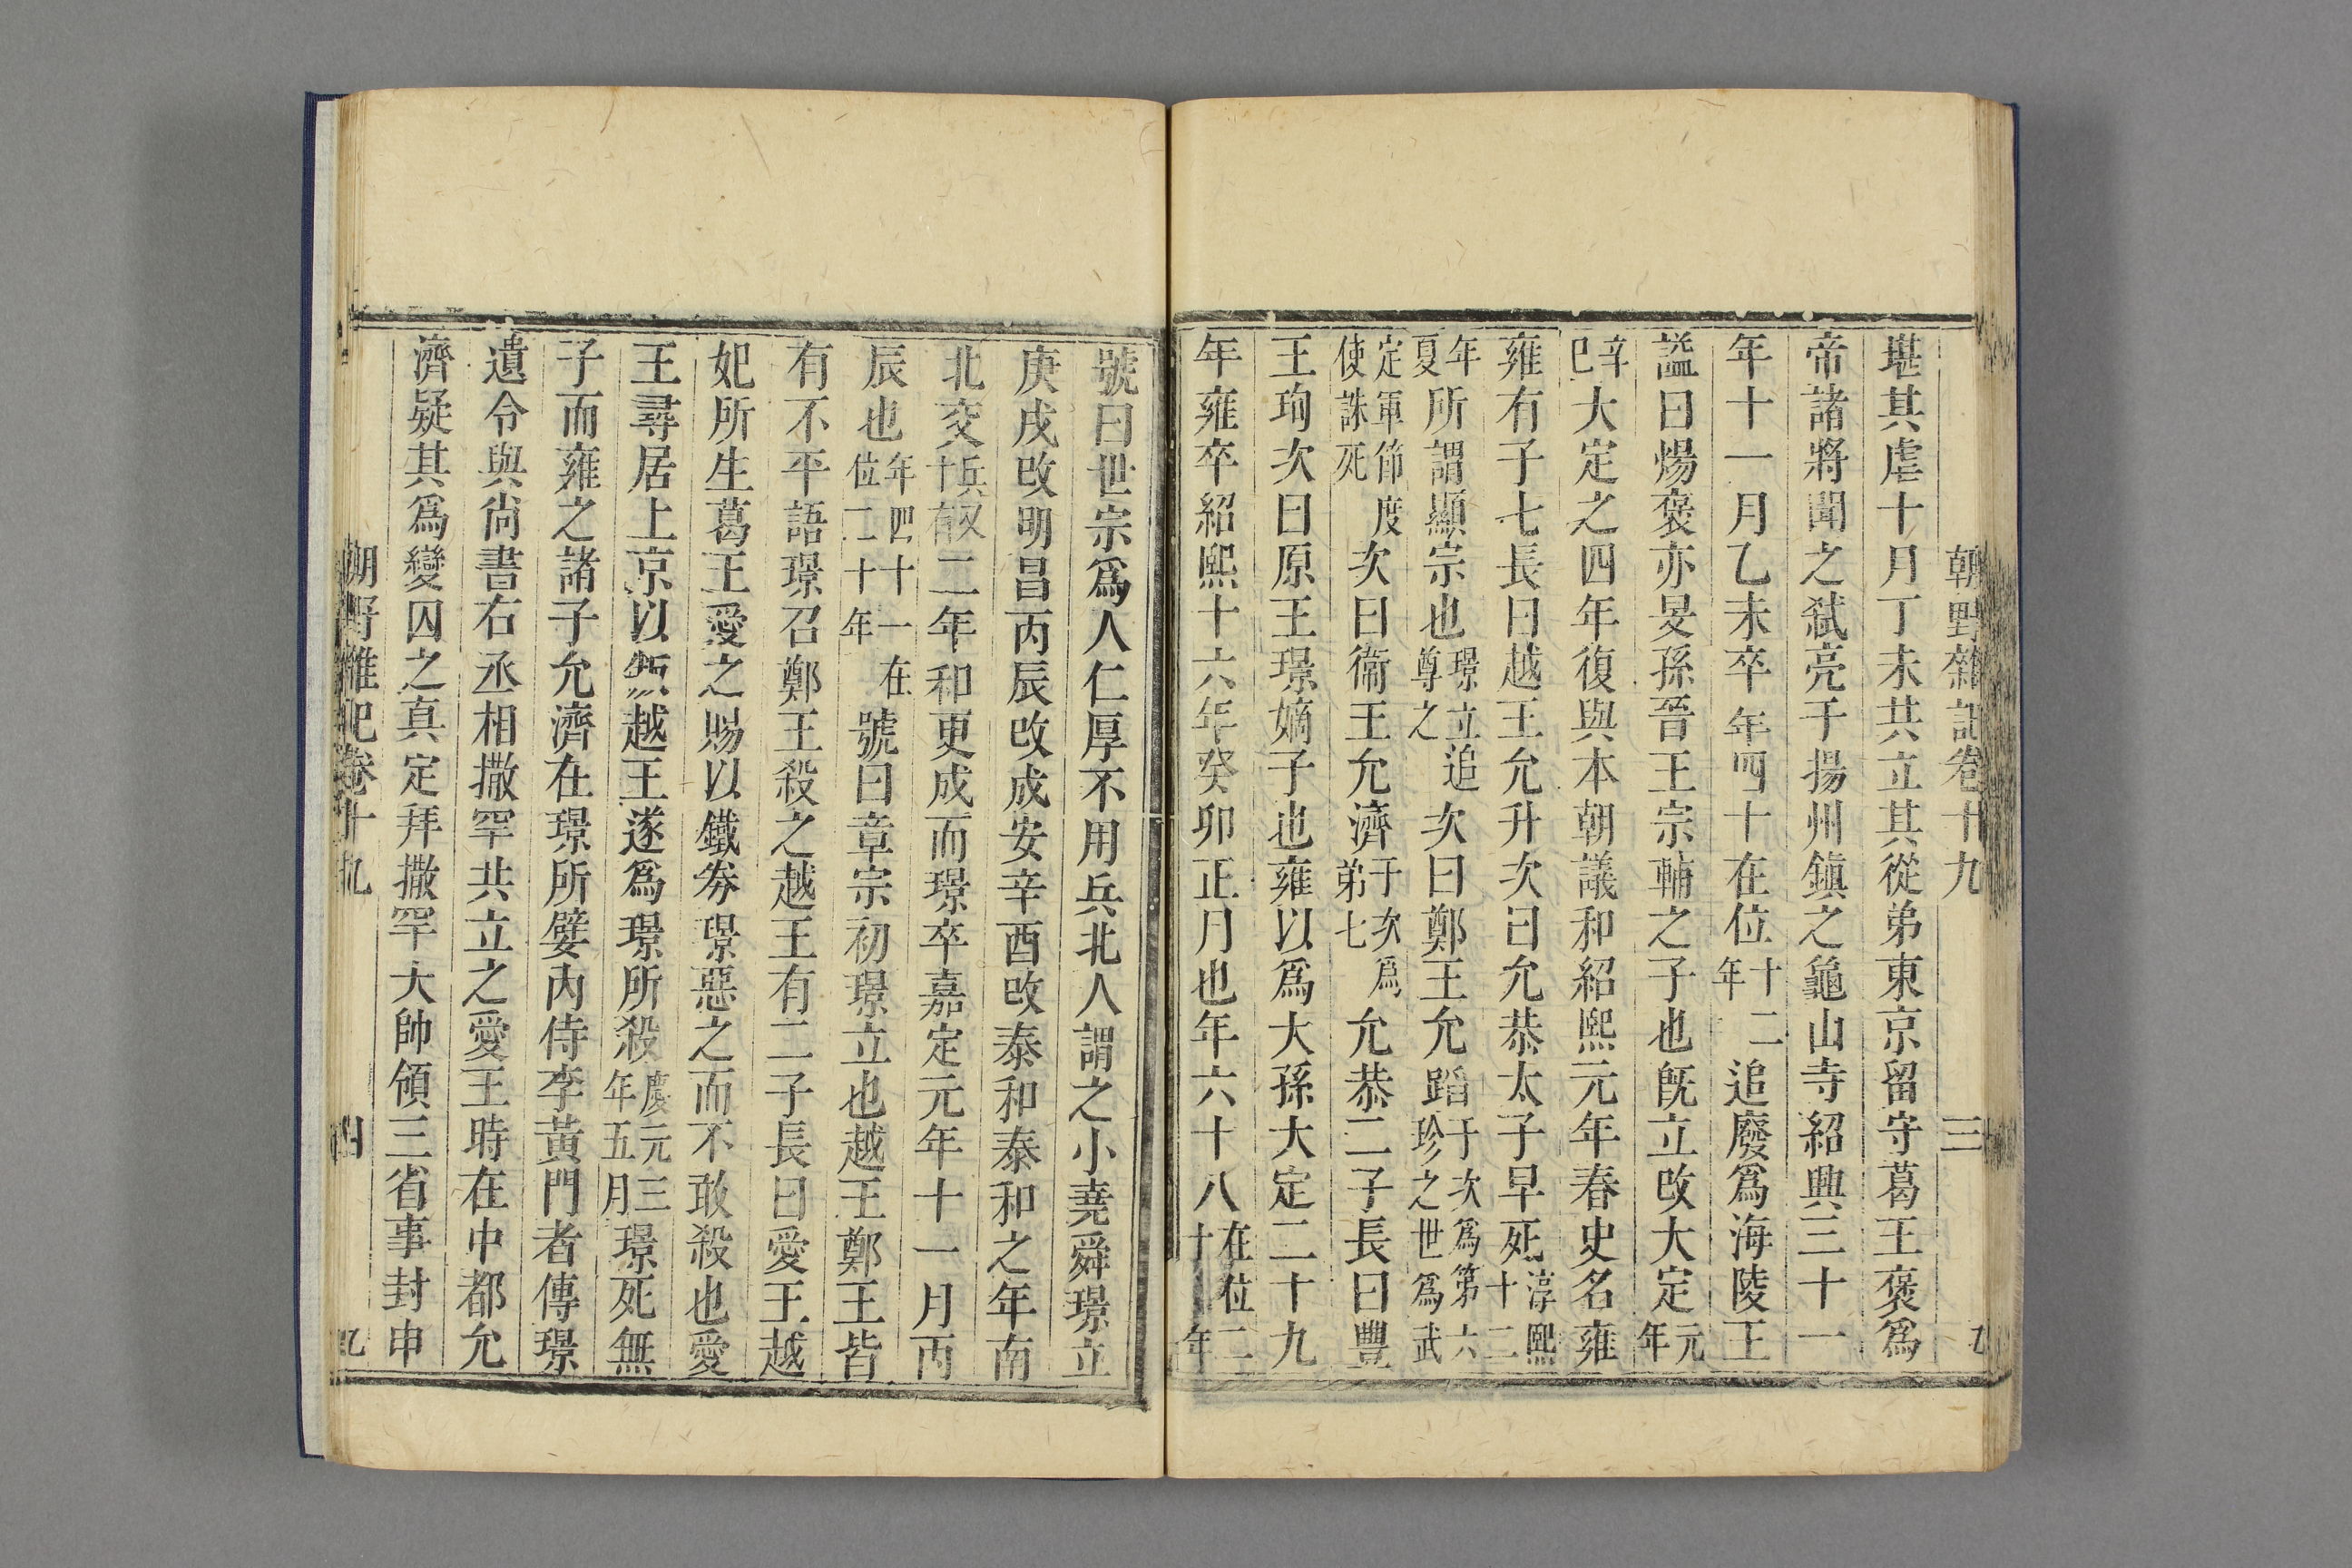 朝野雜記卷十九 三
堪其虐十月丁未共立其從弟東京留守葛王褒爲
帝諸將聞之弑亮于揚州鎮之龜山寺紹興三十一
年十一月乙未卒年四十在位十二年追廢爲海陵王
謚曰煬褒亦旻孫晉王宗輔之子也旣立改大定元年
辛巳大定之四年復與本朝議和紹熙元年春史名雍
雍有子七長曰越王允升次曰允恭太子早死淳熙十二
年夏所謂顯宗也璟立尊之追次曰鄭王允蹈于次爲第六珍之世爲武
定軍節度使誅死次曰衞王允濟于次爲弟七允恭二子長曰豐
王珣次曰原王璟嫡子也雍以爲大孫大定二十九
年雍卒紹熙十六年癸卯正月也年六十八在位二十年
號曰世宗爲人仁厚不用兵北人謂之小堯舜璟立
庚戌改明昌丙辰改成安辛酉改泰和泰和之年南
北交兵又二年和更成而璟卒嘉定元年十一月丙
辰也年四十一在位二十年號曰章宗初璟立也越王鄭王皆
有不平語璟召鄭王殺之越王有二子長曰愛王越
妃所生葛王愛之賜以鐵券璟惡之而不敢殺也愛
王尋居上京以叛越王遂爲璟所殺慶元三年五月璟死無
子而雍之諸子允濟在璟所嬖內侍李黃門者傳璟
遺令與尙書右丞相撒罕共立之愛王時在中都允
濟疑其爲變囚之真定拜撒罕大帥領三省事封申
朝野雜記卷十九 四